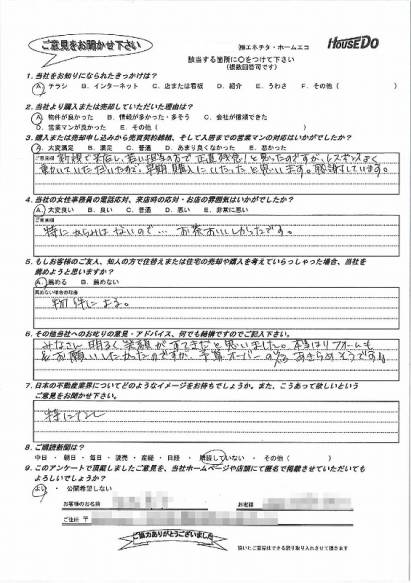 ご意見をお聞かせ下さい
㈱エネチタ・ホームエコ
HouseDo
該当する箇所に○をつけて下さい
(複数回答可です)
1. 当社をお知りになられたきっかけは?
A. チラシ B. インターネット C. 店または看板 D. 紹介 E. うわさ F. その他( )
2. 当社より購入または売却していただいた理由は?
A. 物件が良かった B. 情報が多かった・多そう C. 会社が信頼できた
D. 営業マンが良かった E. その他( )
3. 購入または売却申し込みから売買契約締結、そして入居までの営業マンの対応はいかがでしたか?
A. 大変満足 B. 満足 C. 普通 D. あまり良くなかった E. 悪かった
ご意見欄
新規で来店し、若い担当の方で正直残念!と思ったのですが、レスポンスよく
動いていただいたので、早期購入にいたったと思います。感謝しています。
4. 当社の女性事務員の電話応対、来店時の応対・お店の雰囲気はいかがでしたか?
A. 大変良い B. 良い C. 普通 D. 悪い E. 非常に悪い
ご意見欄
特にからみはないので… お茶おいしかったです。
5. もしお客様のご友人、知人の方で住替えまたは住宅の売却や購入を考えていらっしゃった場合、当社を
薦めようと思いますか?
A. 薦める B. 薦めない
薦めない場合の理由
物件による。
6. その他当社へのお叱りの意見・アドバイス、何でも結構ですのでご記入下さい。
みなさん明るく、笑顔がすてきだと思いました。本当はリフォームも
お願いしたかったのですが、予算オーバーの為 あきらめそうです
7. 日本の不動産業界についてどのようなイメージをお持ちでしょうか。また、こうあって欲しいという
ご意見をお聞かせ下さい。
特になし
8. ご購読新聞は?
中日 ・ 朝日 ・ 毎日 ・ 読売 ・ 産経 ・ 日経 ・ 購読していない ・ その他( )
9. このアンケートで頂戴しましたご意見を、当社ホームページや店頭にて匿名で掲載させていただいても
よろしいでしょうか?
よい ・ 公開希望しない
お客様のお名前 お名前
ご住所 〒
ご協力ありがとうございました